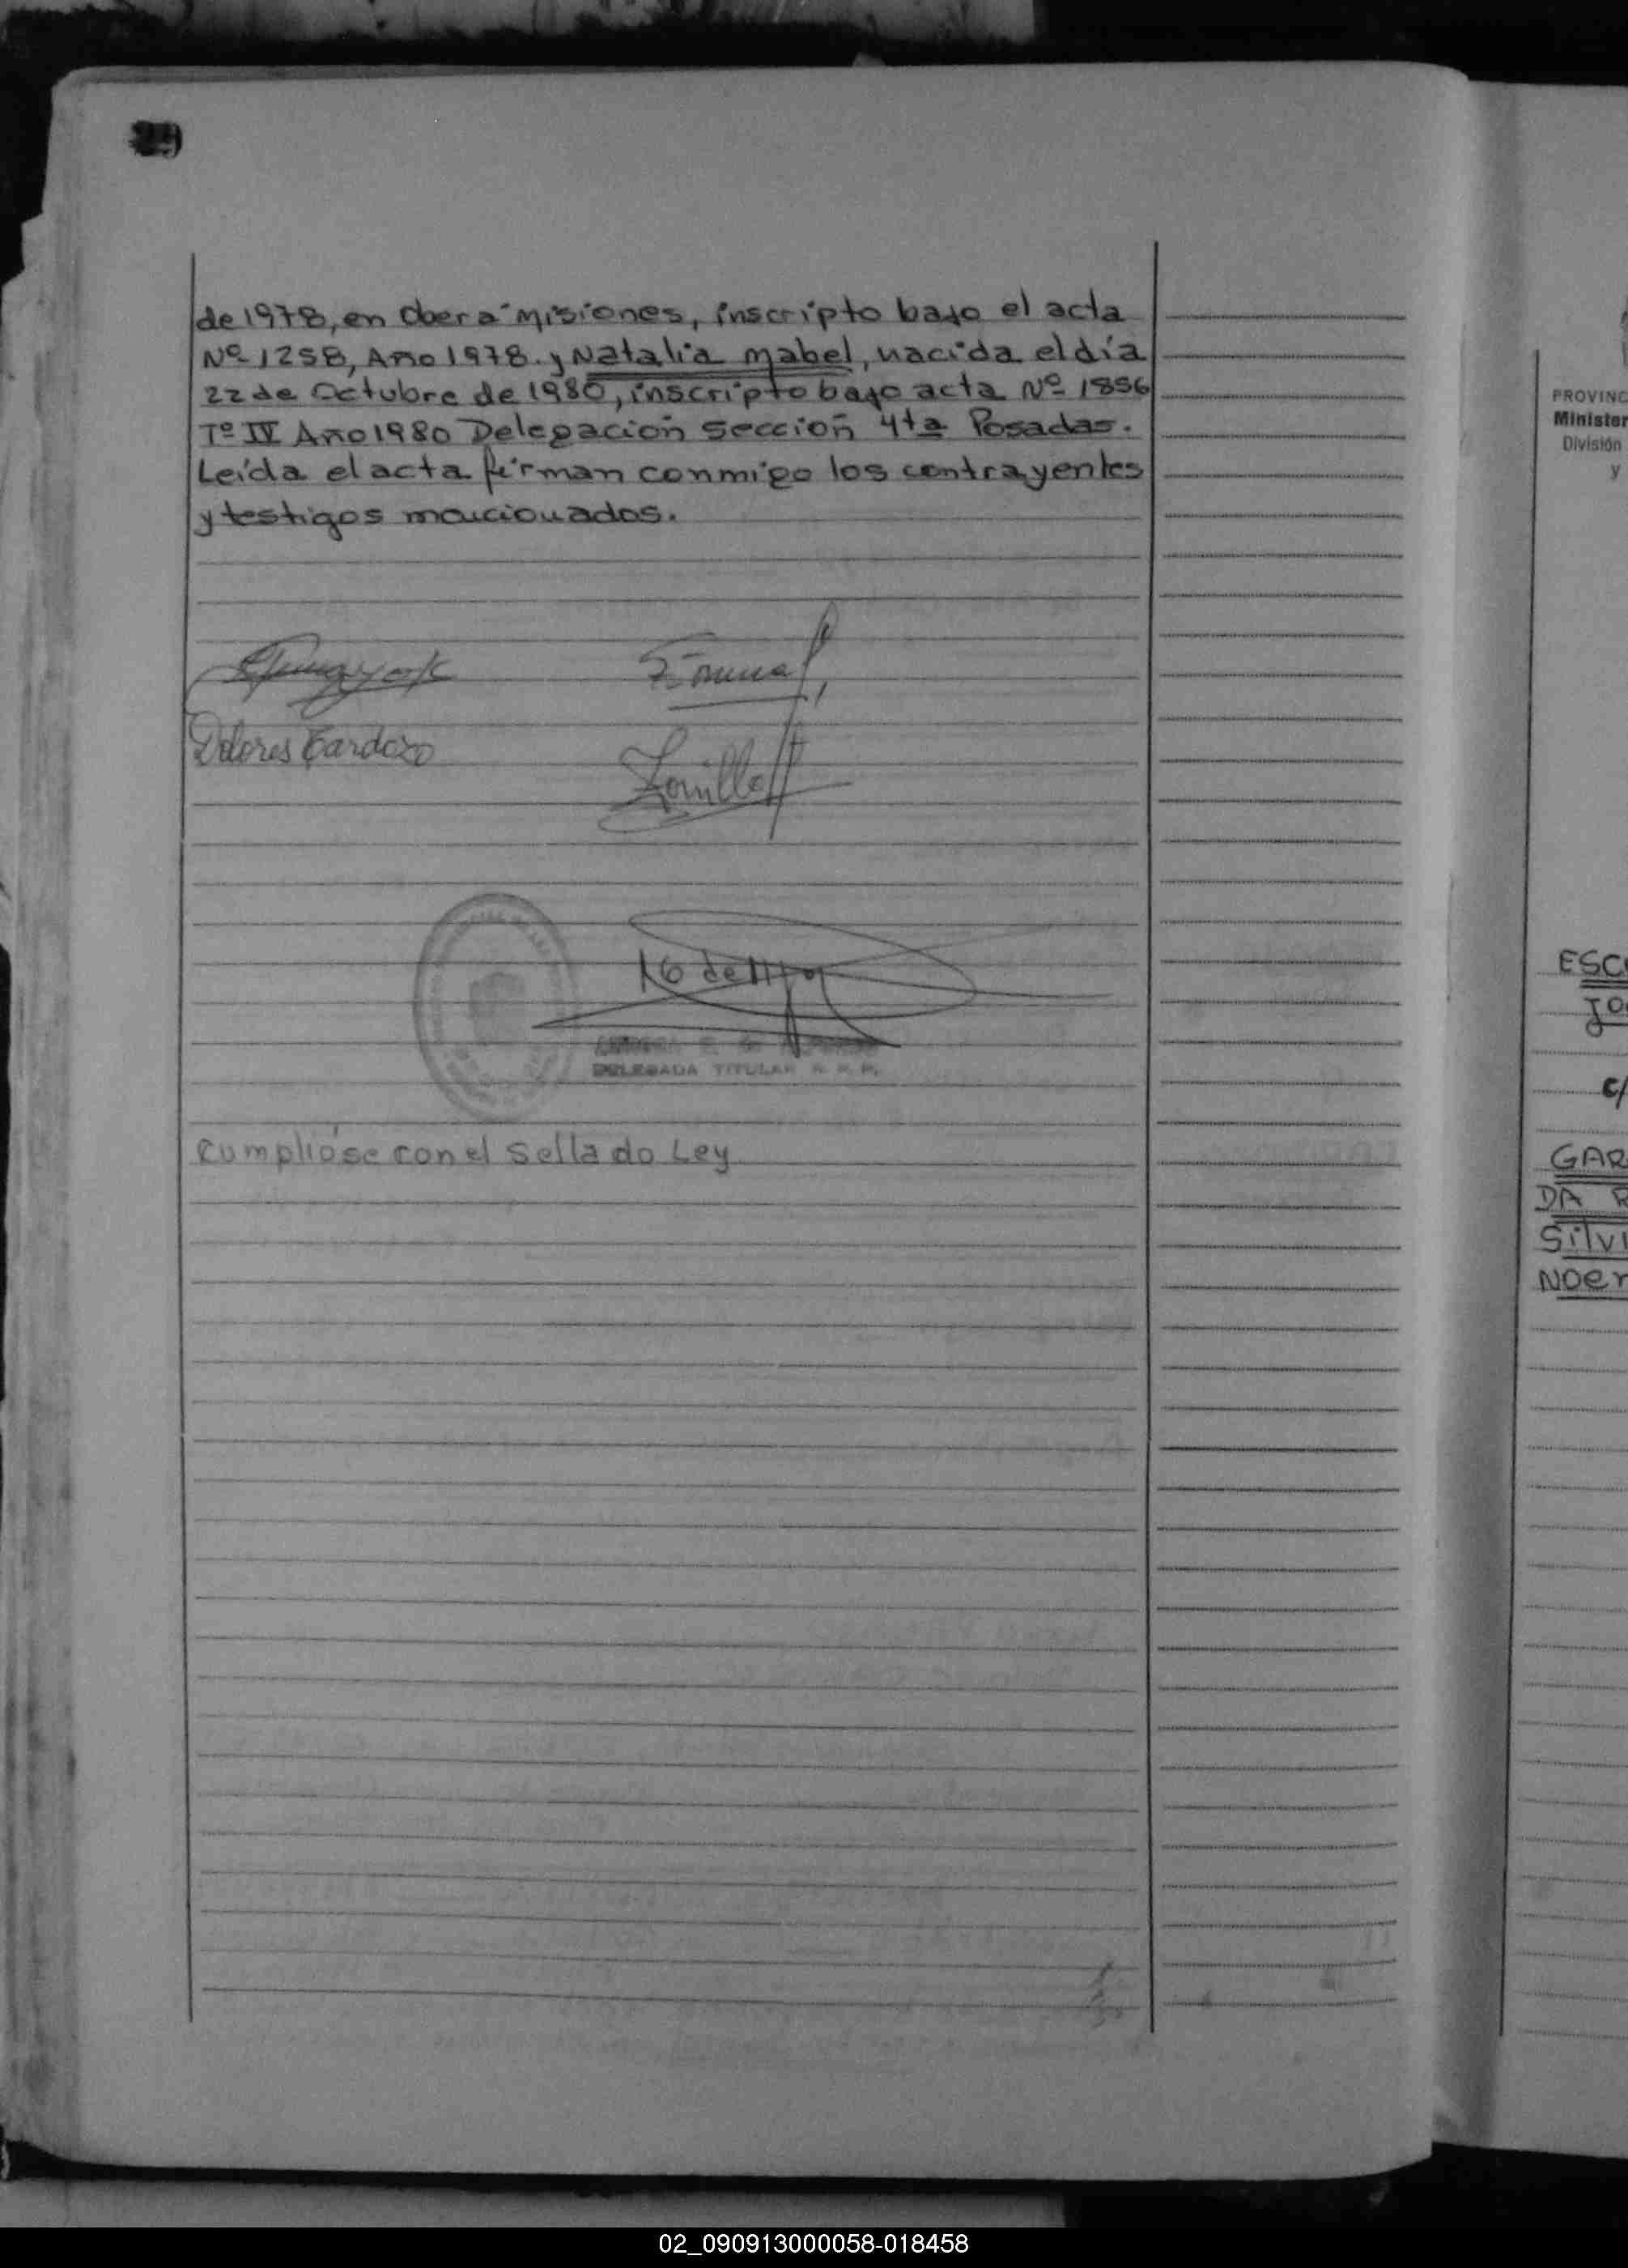 de 1978, en Obera Misiones, inscripto bajo el acta
Nº 1258, Año 1978. y Natalia Mabel, nacida el día
22 de Octubre de 1980, inscripto bajo acta Nº 1856
Tº IV Año 1980 Delegación Sección 4ta Posadas.
Leída el acta firman conmigo los contrayentes
y testigos mencionados.
Dolores Cardozo
DELEGADA TITULAR R. P.
Cumplióse con el Sellado Ley
PROVINC
Minister
División
y
ESC
JO
c/
GAR
DA R
Silvi
Noer
02_090913000058-018458